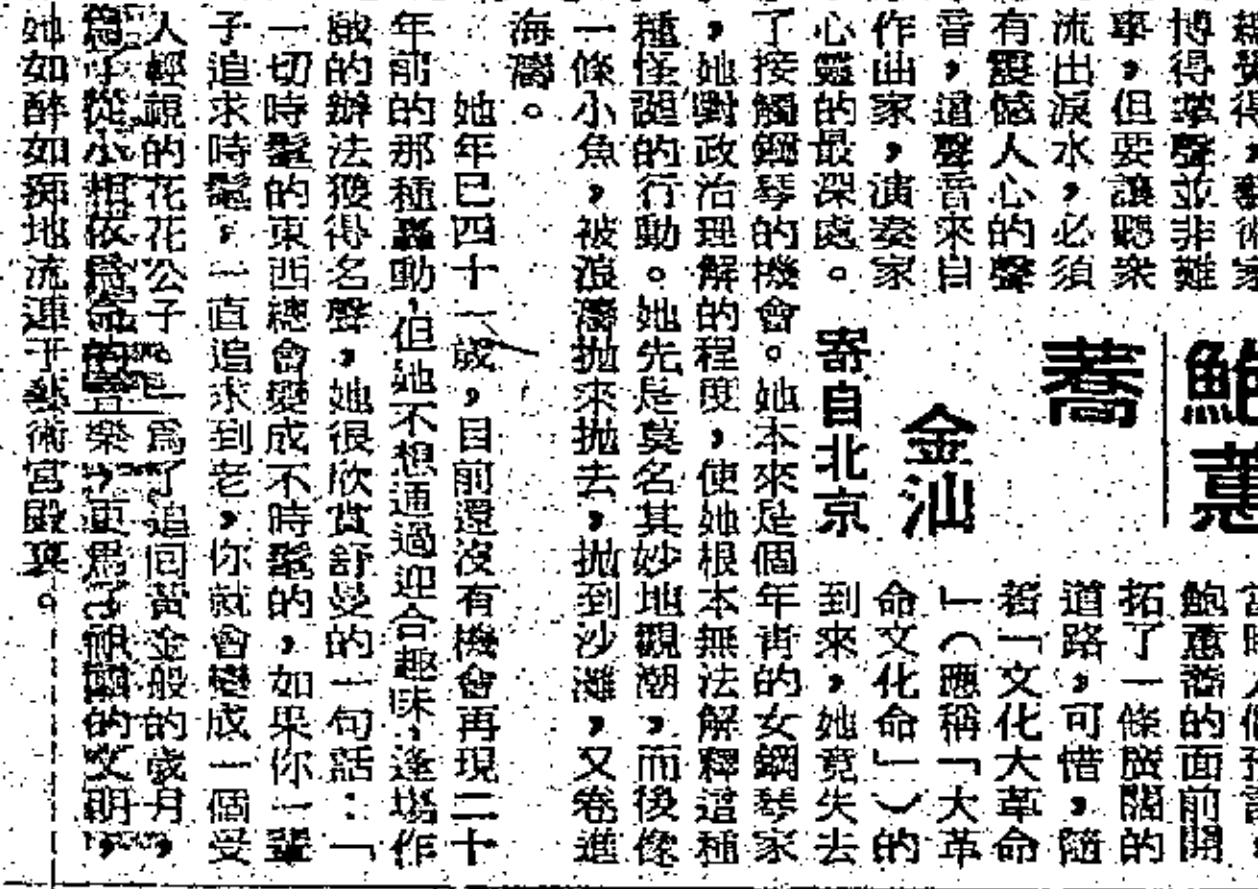 博得掌聲並非難
事，但要讓聽衆
流出淚水，必須
有震憾人心的聲
音，這聲音來自
作曲家，演奏家
心靈的最深處。
鮑蕙
蕎
金汕
寄自北京
鮑蕙蕎的面前開
拓了一條廣闊的
道路，可惜，隨
着「文化大革命
」（應稱「大革
命文化命」）的
到來，她竟失去
了接觸鋼琴的機會。她本來是個年青的女鋼琴家
，她對政治理解的程度，使她根本無法解釋這種
種怪誕的行動。她先是莫名其妙地觀潮，而後像
一條小魚，被浪濤拋來拋去，拋到沙灘，又卷進
海濤。
她年已四十一歲，目前還沒有機會再現二十
年前的那種轟動，但她不想通過迎合趣味、逢塲作
戲的辦法獲得名聲，她很欣賞舒曼的一句話：「
一切時髦的東西總會變成不時髦的，如果你一輩
子追求時髦，一直追求到老，你就會變成一個受
人輕視的花花公子。」爲了追回黃金般的歲月，
爲了從小相依爲命的音樂，更爲了祖國的文明，
她如醉如痴地流連于藝術宮殿裏。